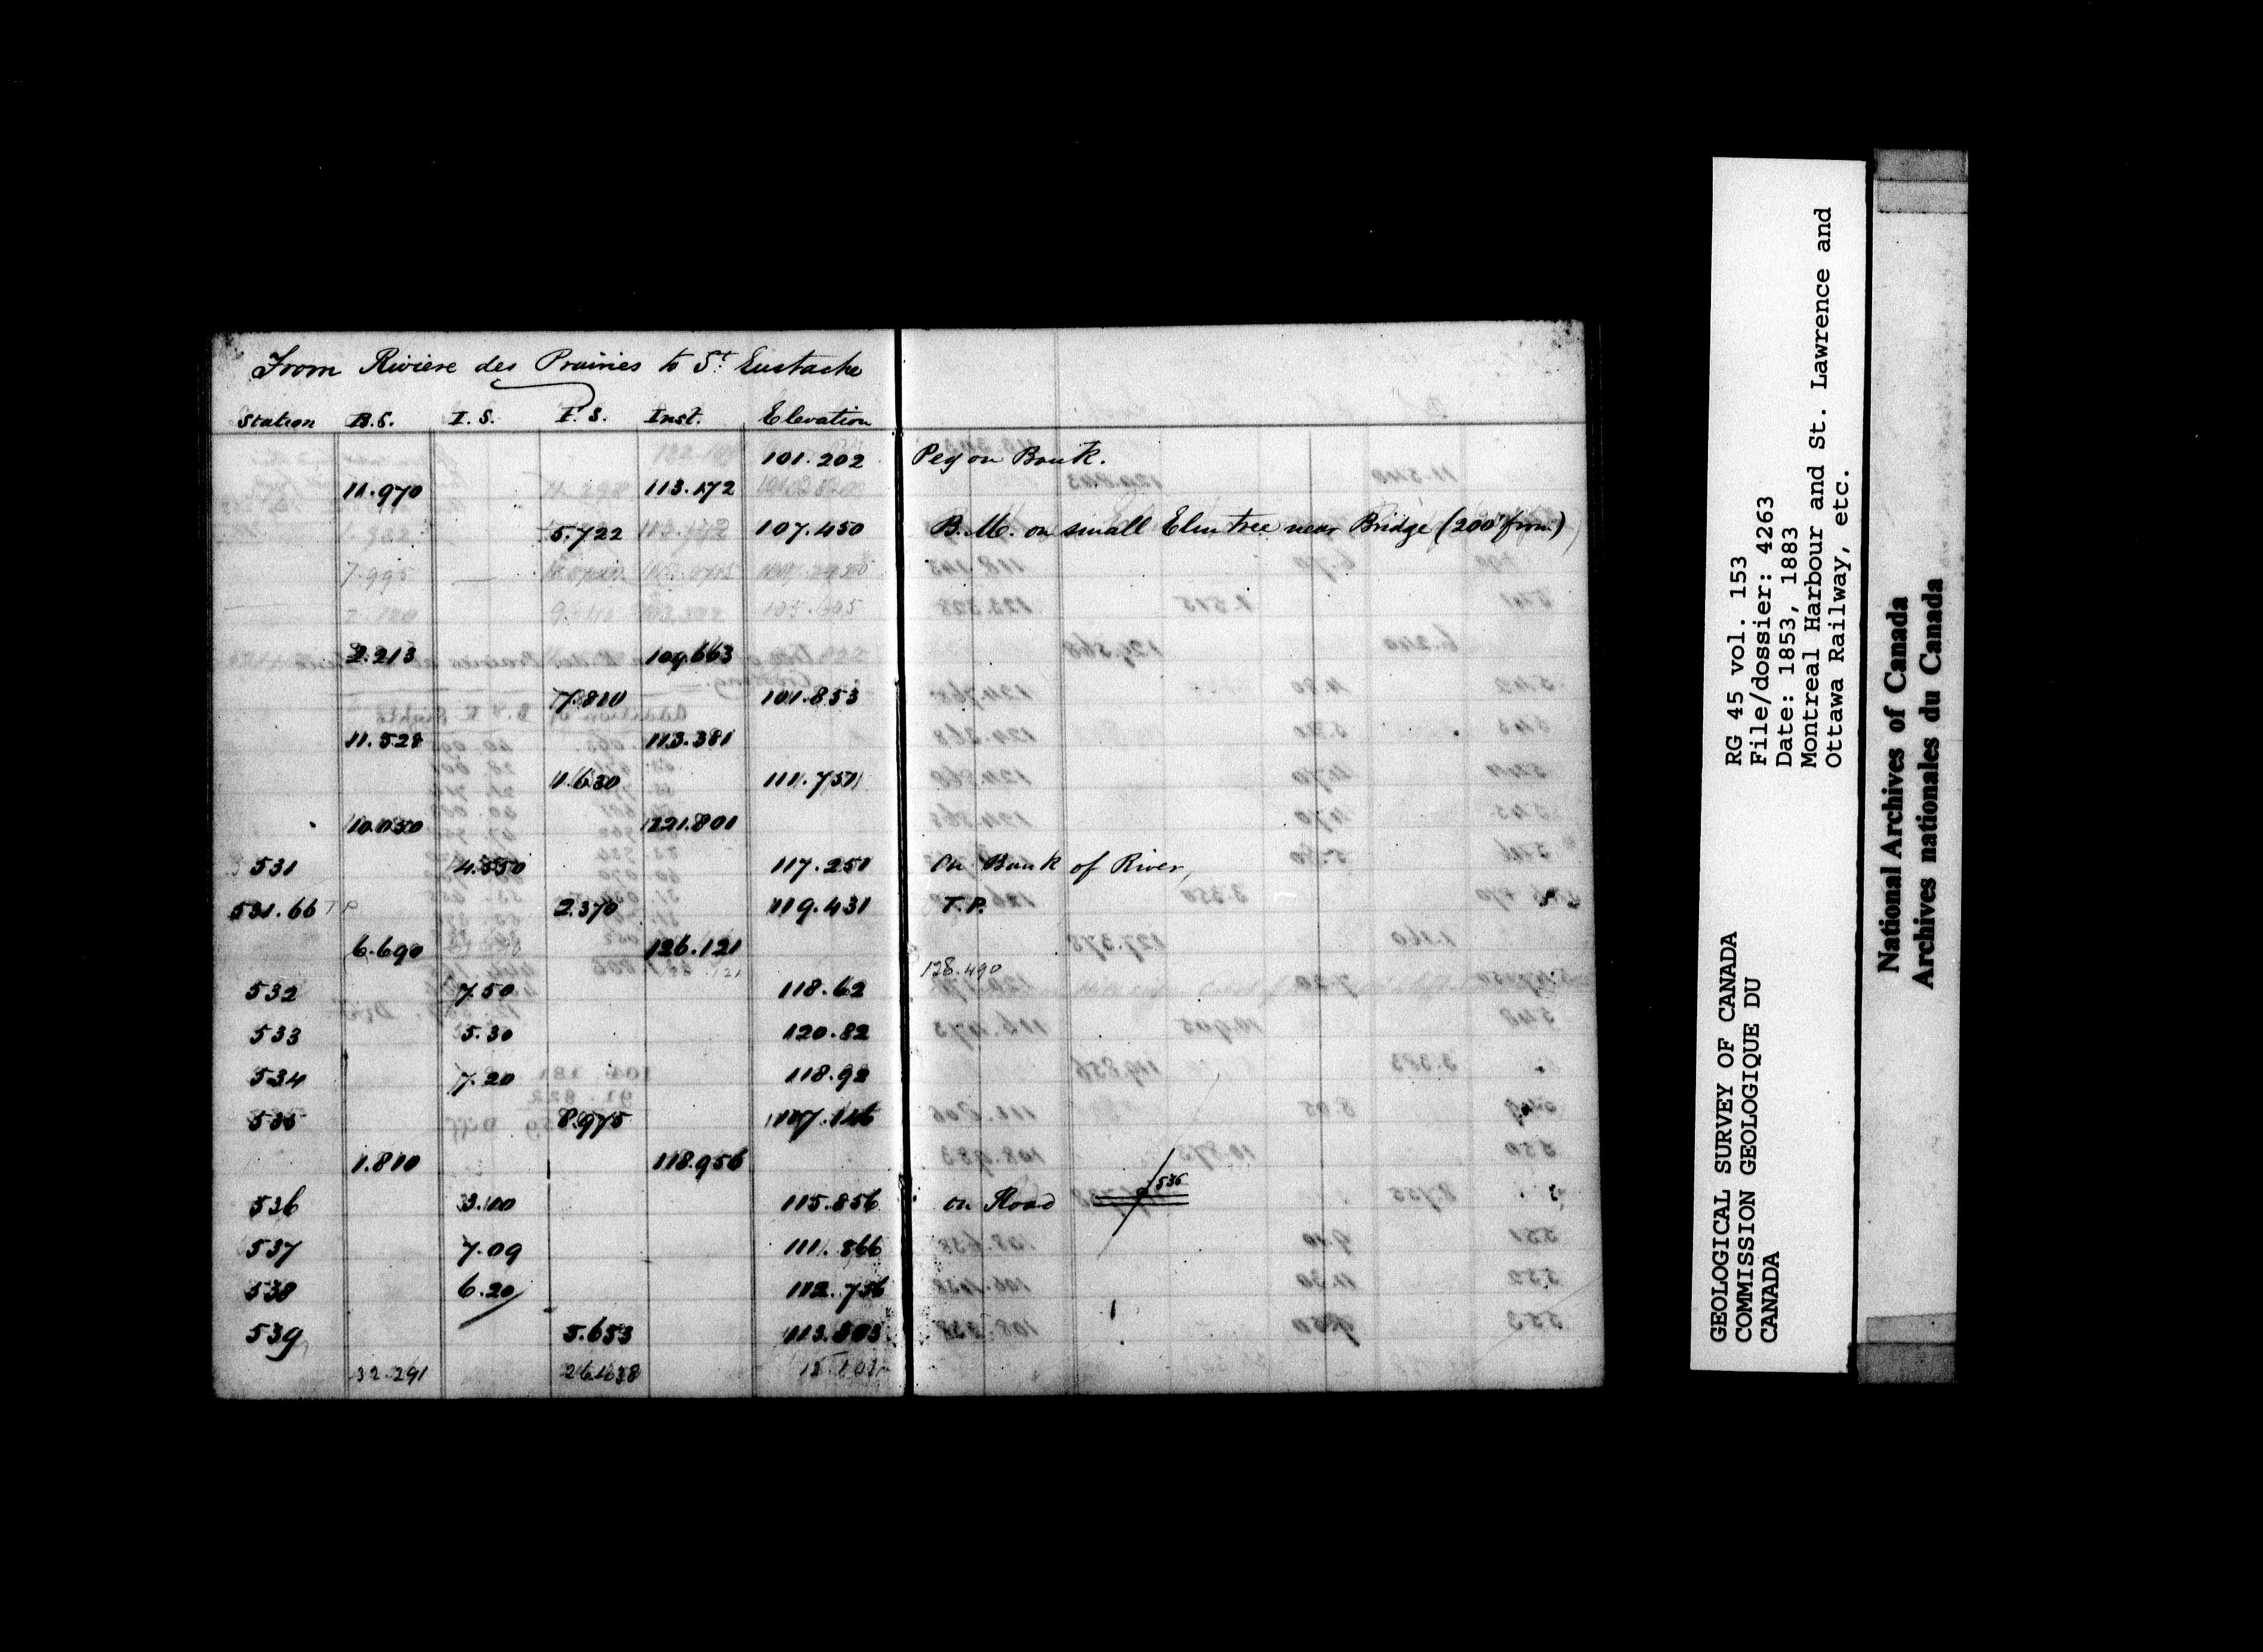 From Riviere des Prairies to St Eustache
Station B.S. I.S. F.S. Inst. Elevation
101.202 Peg on Bank.
11.970 113.172
5.722 107.450 B.M. on small Elm tree near Bridge (200' from)
7.995
105.605
2.213 109.663
7.810 101.853
11.528 113.381
1.630 111.751
10.050 121.801
531 4.550 117.251 On Bank of River,
531.66 T P 2.370 119.431 T.P.
6.690 126.121
128.490
532 7.50 118.62
533 5.30 120.82
534 7.20 118.92
535 8.975 117.146
1.810 118.956
536 3.10 115.856 on Road 536
537 7.09 111.866
538 6.20 112.756
539 5.653 113.303
32.291 26.638
RG 45 vol. 153
File/dossier: 4263
Date: 1853, 1883
Montreal Harbour and St. Lawrence and
Ottawa Railway, etc.
GEOLOGICAL SURVEY OF CANADA
COMMISSION GEOLOGIQUE DU
CANADA
National Archives of Canada
Archives nationales du Canada